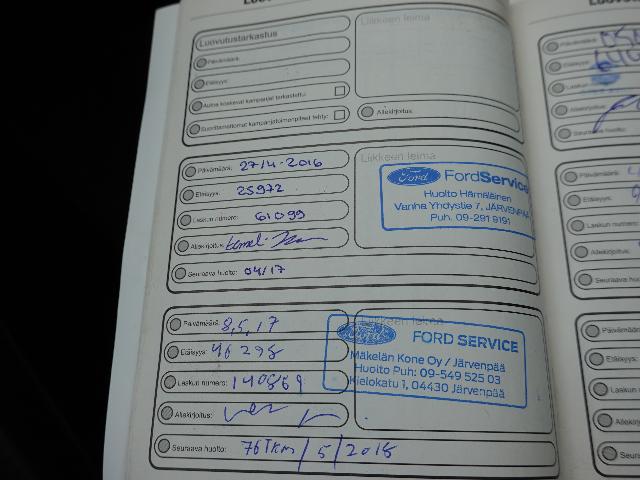 Luovutustarkastus
Liikkeen leima
Päivämäärä:
Etäisyys:
Autoa koskevat kampanjat tarkastettu:
Suorittamattomat kampanjatoimenpiteet tehty:
Allekirjoitus:
Päivämäärä: 27/4-2016
Liikkeen leima
Etäisyys: 25972
Laskun numero: 61099
Allekirjoitus:
Seuraava huolto: 04/17
Ford FordService
Huolto Hämäläinen
Vanha Yhdystie 7, JÄRVENPÄÄ
Puh. 09-291 9191
Päivämäärä: 8,5,17
Liikkeen leima
Etäisyys: 46298
Laskun numero: 140869
Allekirjoitus:
Seuraava huolto: 76Tkm/5/2018
Ford FORD SERVICE
Mäkelän Kone Oy / Järvenpää
Huolto Puh: 09-549 525 03
Kielokatu 1, 04430 Järvenpää
Päivämäärä:
Etäisyys:
Laskun
Allekirjoitus:
Seuraava huolto:
Päivämäärä:
Etäisyys:
Laskun numero:
Allekirjoitus:
Seuraava huolto:
Päivämäärä:
Etäisyys:
Laskun numero
Allekirjoitus:
Seuraava huolto: